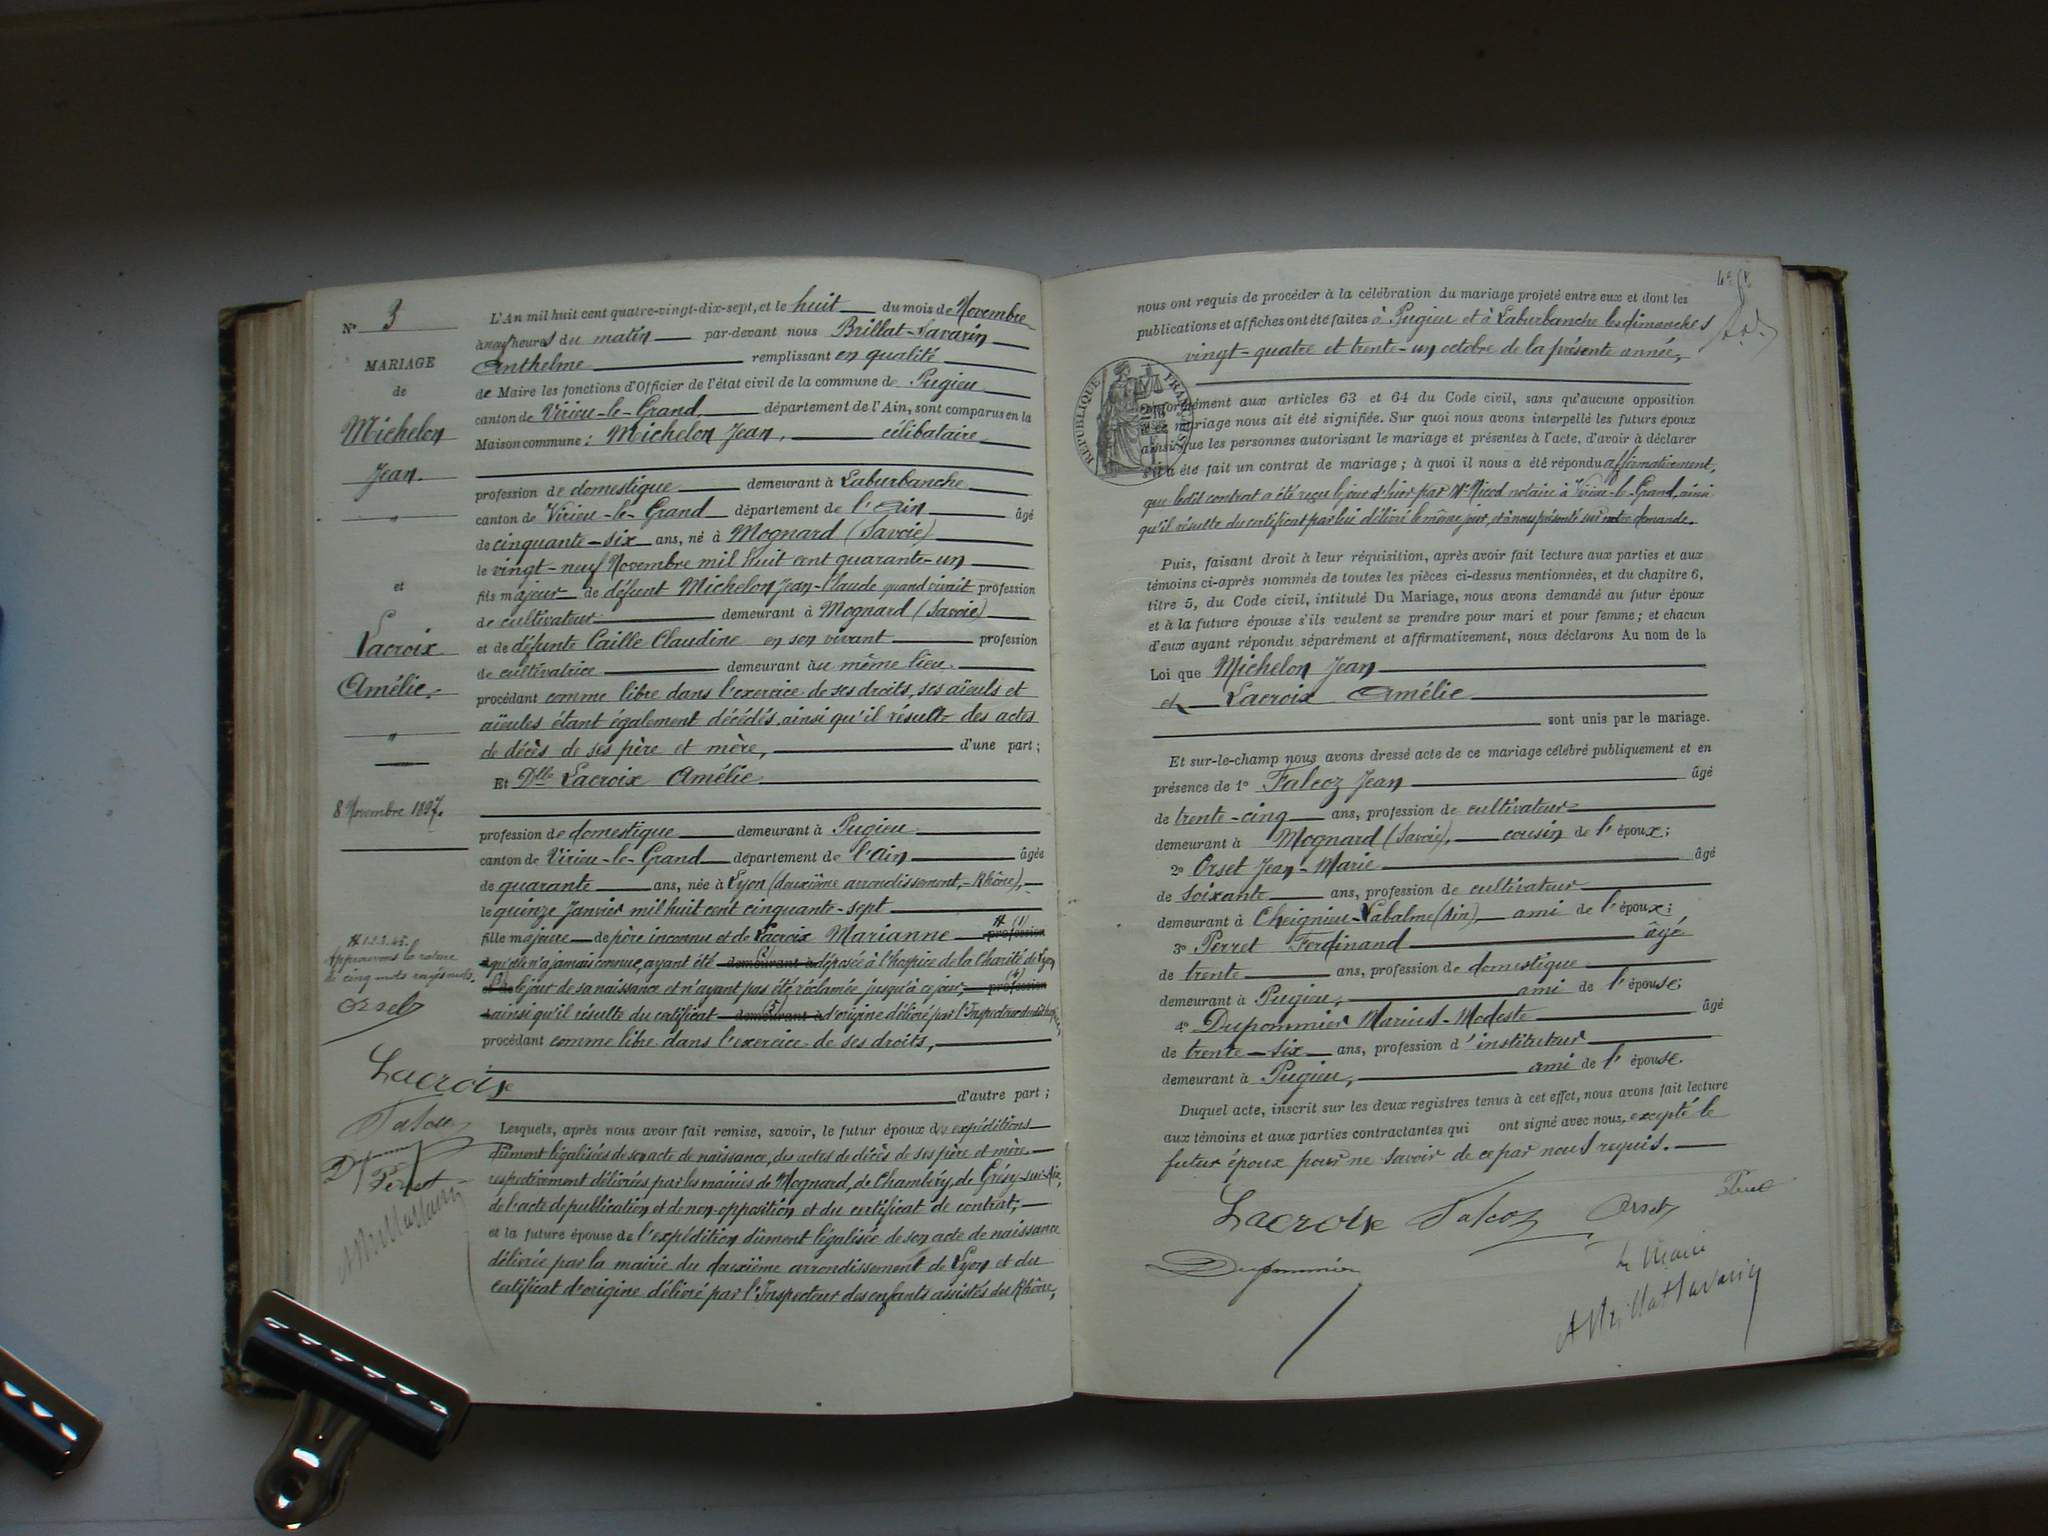 N° 3
MARIAGE
de
Michelon
Jean.
"
et
Lacroix
Amélie.
"
8 Novembre 1897.
Approuvons la rature
de cinq mots rayés nuls.
Orset
Lacroix
Falcoz
Perret
A Brillat Savarin
L'An mil huit cent quatre-vingt-dix-sept, et le huit du mois de Novembre
à neuf heures du matin par-devant nous Brillat-Savarin
Anthelme remplissant en qualité
de Maire les fonctions d'Officier de l'état civil de la commune de Pugieu
canton de Virieu-le-Grand, département de l'Ain, sont comparus en la
Maison commune : Michelon Jean, célibataire
profession de domestique demeurant à Laburbanche
canton de Virieu-le-Grand département de l'Ain âgé
de cinquante-six ans, né à Mognard (Savoie)
le vingt-neuf Novembre mil huit cent quarante-un
fils majeur de défunt Michelon Jean-Claude quand vivait profession
de cultivateur demeurant à Mognard (Savoie)
et de défunte Caille Claudine en son vivant profession
de cultivatrice demeurant au même lieu.
procédant comme libre dans l'exercice de ses droits, ses aïeuls et
aïeules étant également décédés, ainsi qu'il résulte des actes
de décès de ses père et mère, d'une part ;
Et Dlle Lacroix Amélie
profession de domestique demeurant à Pugieu
canton de Virieu-le-Grand département de l'Ain âgée
de quarante ans, née à Lyon (deuxième arrondissement, - Rhône),
le quinze Janvier mil huit cent cinquante-sept
fille majeure de père inconnu et de Lacroix Marianne profession (1)
qu'elle n'a jamais connue, ayant été demeurant à déposée à l'hospice de la Charité de Lyon
et de le jour de sa naissance et n'ayant pas été réclamée jusqu'à ce jour, profession (4)
ainsi qu'il résulte du certificat demeurant à (5) d'origine délivré par l'Inspecteur dudit
procédant comme libre dans l'exercice de ses droits,
d'autre part ;
Lesquels, après nous avoir fait remise, savoir, le futur époux des expéditions
dûment légalisées de son acte de naissance, des actes de décès de ses père et mère
respectivement délivrées par les mairies de Mognard, de Chambéry, de Grésy-sur-Aix,
de l'acte de publication et de non-opposition et du certificat de contrat,
et la future épouse de l'expédition dûment légalisée de son acte de naissance
délivrée par la mairie du deuxième arrondissement de Lyon et du
certificat d'origine délivré par l'Inspecteur des enfants assistés du Rhône,
nous ont requis de procéder à la célébration du mariage projeté entre eux et dont les
publications et affiches ont été faites à Pugieu et à Laburbanche les dimanches
vingt-quatre et trente-un octobre de la présente année,
RÉPUBLIQUE FRANÇAISE
conformément aux articles 63 et 64 du Code civil, sans qu'aucune opposition
au mariage nous ait été signifiée. Sur quoi nous avons interpellé les futurs époux
ainsi que les personnes autorisant le mariage et présentes à l'acte, d'avoir à déclarer
s'il a été fait un contrat de mariage ; à quoi il nous a été répondu affirmativement,
que ledit contrat a été reçu le jour d'hier par Me Nicod notaire à Virieu-le-Grand, ainsi
qu'il résulte du certificat par lui délivré le même jour, et à nous présenté sur notre demande.
Puis, faisant droit à leur réquisition, après avoir fait lecture aux parties et aux
témoins ci-après nommés de toutes les pièces ci-dessus mentionnées, et du chapitre 6,
titre 5, du Code civil, intitulé Du Mariage, nous avons demandé au futur époux
et à la future épouse s'ils veulent se prendre pour mari et pour femme ; et chacun
d'eux ayant répondu séparément et affirmativement, nous déclarons Au nom de la
Loi que Michelon Jean
et Lacroix Amélie
sont unis par le mariage.
Et sur-le-champ nous avons dressé acte de ce mariage célébré publiquement et en
présence de 1° Falcoz Jean âgé
de trente-cinq ans, profession de cultivateur
demeurant à Mognard (Savoie), cousin de l'époux ;
2° Orset Jean-Marie âgé
de soixante ans, profession de cultivateur
demeurant à Cheignieu-Labalme (Ain) ami de l'époux ;
3° Perret Ferdinand âgé
de trente ans, profession de domestique
demeurant à Pugieu, ami de l'épouse ;
4° Dupommier Marius-Modeste âgé
de trente-six ans, profession d'instituteur
demeurant à Pugieu, ami de l'épouse.
Duquel acte, inscrit sur les deux registres tenus à cet effet, nous avons fait lecture
aux témoins et aux parties contractantes qui ont signé avec nous, excepté le
futur époux pour ne savoir de ce par nous requis.
Lacroix Falcoz Orset Perret
Dupommier
Le Maire
A Brillat Savarin